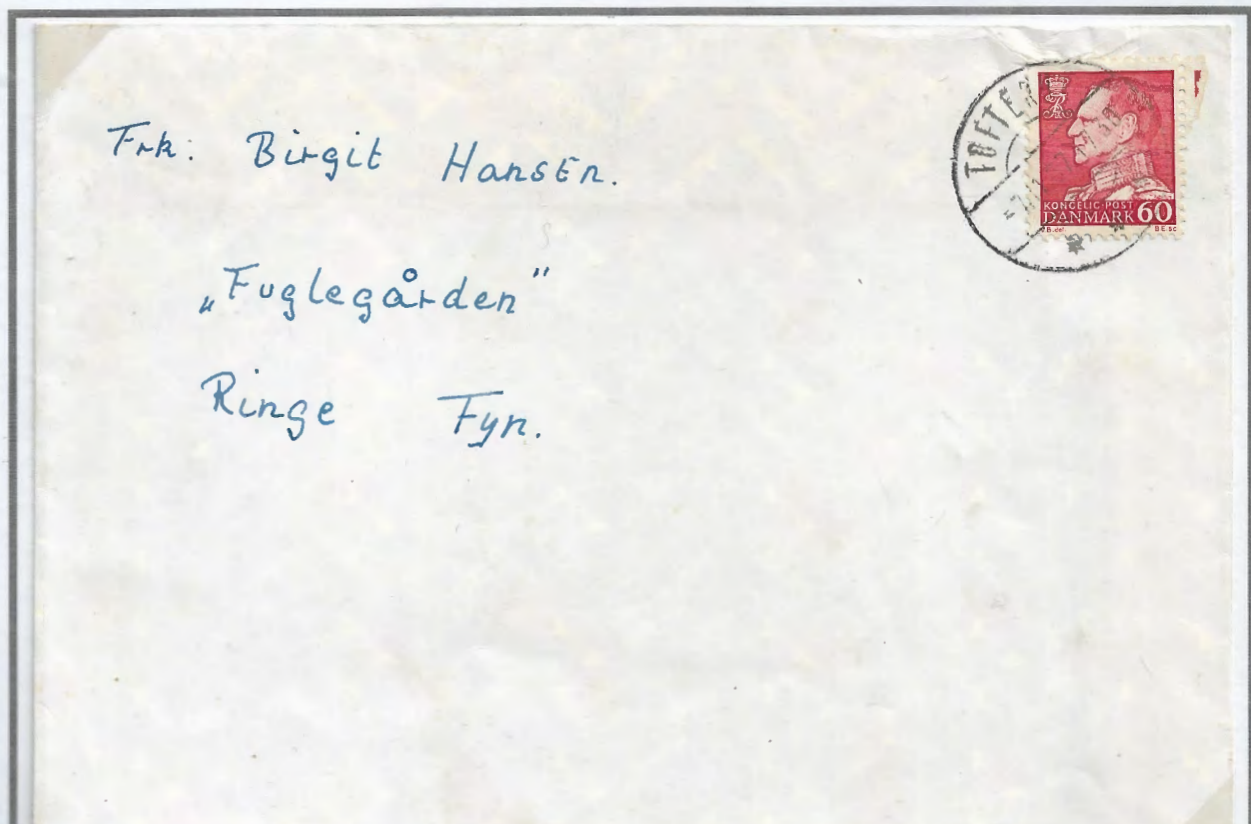 Frk: Birgit Hansen.
„Fuglegården"
Ringe Fyn.
KONGELIG·POST
DANMARK 60